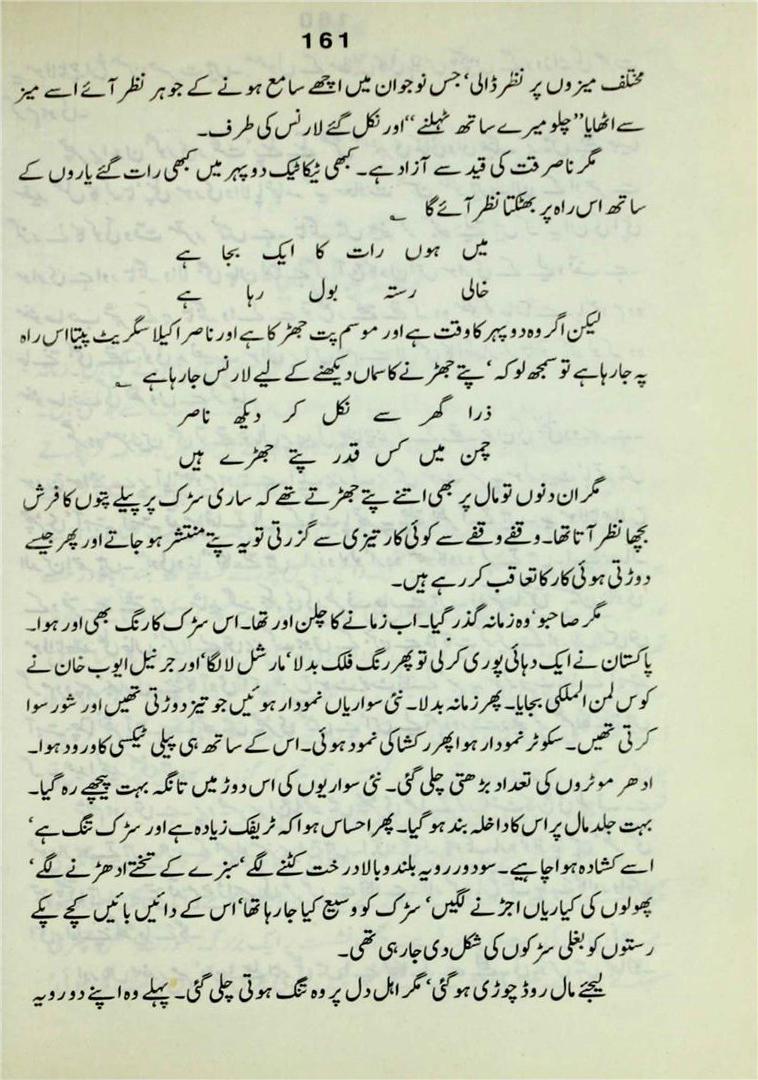 161
مختلف میزوں پر نظر ڈالی‘ جس نوجوان میں اچھے سامع ہونے کے جوہر نظر آئے اسے میز
سے اٹھایا’’ چلو میرے ساتھ ٹہلنے ‘‘ اور نکل گئے لارنس کی طرف۔
مگر ناصر فت کی قید سے آزاد ہے۔ کبھی ٹیکا ٹیک دوپہر میں کبھی رات گئے یاروں کے
ساتھ اس راہ پر بھٹکتا نظر آئے گا ؎
میں ہوں رات کا ایک بجا ہے
خالی رستہ بول رہا ہے
لیکن اگر وہ دوپہر کا وقت ہے اور موسم پت جھڑ کا ہے اور ناصر اکیلا سگریٹ پیتا اس راہ
پہ جا رہا ہے تو سمجھ لو کہ‘ پتے جھڑنے کا سماں دیکھنے کے لیے لارنس جا رہا ہے ؎
ذرا گھر سے نکل کر دیکھ ناصر
چمن میں کس قدر پتے جھڑے ہیں
مگر ان دنوں تو مال پر بھی اتنے پتے جھڑتے تھے کہ ساری سڑک پر پیلے پتوں کا فرش
بچھا نظر آتا تھا۔ وقفے وقفے سے کوئی کار تیزی سے گزرتی تو یہ پتے منتشر ہو جاتے اور پھر جیسے
دوڑتی ہوئی کار کا تعاقب کر رہے ہیں۔
مگر صاحبو‘ وہ زمانہ گذر گیا۔ اب زمانے کا چلن اور تھا۔ اس سڑک کا رنگ بھی اور ہوا۔
پاکستان نے ایک دہائی پوری کر لی تو پھر رنگ فلک بدلا‘ مارشل لا لگا‘ اور جرنیل ایوب خان نے
کوس لمن الملکی بجایا۔ پھر زمانہ بدلا۔ نئی سواریاں نمودار ہوئیں جو تیز دوڑتی تھیں اور شور سوا
کرتی تھیں۔ سکوٹر نمودار ہوا پھر رکشا کی نمود ہوئی۔ اس کے ساتھ ہی پیلی ٹیکسی کا ورود ہوا۔
ادھر موٹروں کی تعداد بڑھتی چلی گئی۔ نئی سواریوں کی اس دوڑ میں تانگہ بہت پیچھے رہ گیا۔
بہت جلد مال پر اس کا داخلہ بند ہو گیا۔ پھر احساس ہوا کہ ٹریفک زیادہ ہے اور سڑک تنگ ہے‘
اسے کشادہ ہوا چاہیے۔ سو دوررویہ بلند و بالا درخت کٹنے لگے‘ سبزے کے تختے ادھڑنے لگے‘
پھولوں کی کیاریاں اجڑنے لگیں‘ سڑک کو وسیع کیا جا رہا تھا‘ اس کے دائیں بائیں کچے پکے
رستوں کو بغلی سڑکوں کی شکل دی جا رہی تھی۔
لیجئے مال روڈ چوڑی ہو گئی‘ مگر اہل دل پر وہ تنگ ہوتی چلی گئی۔ پہلے وہ اپنے دو رویہ